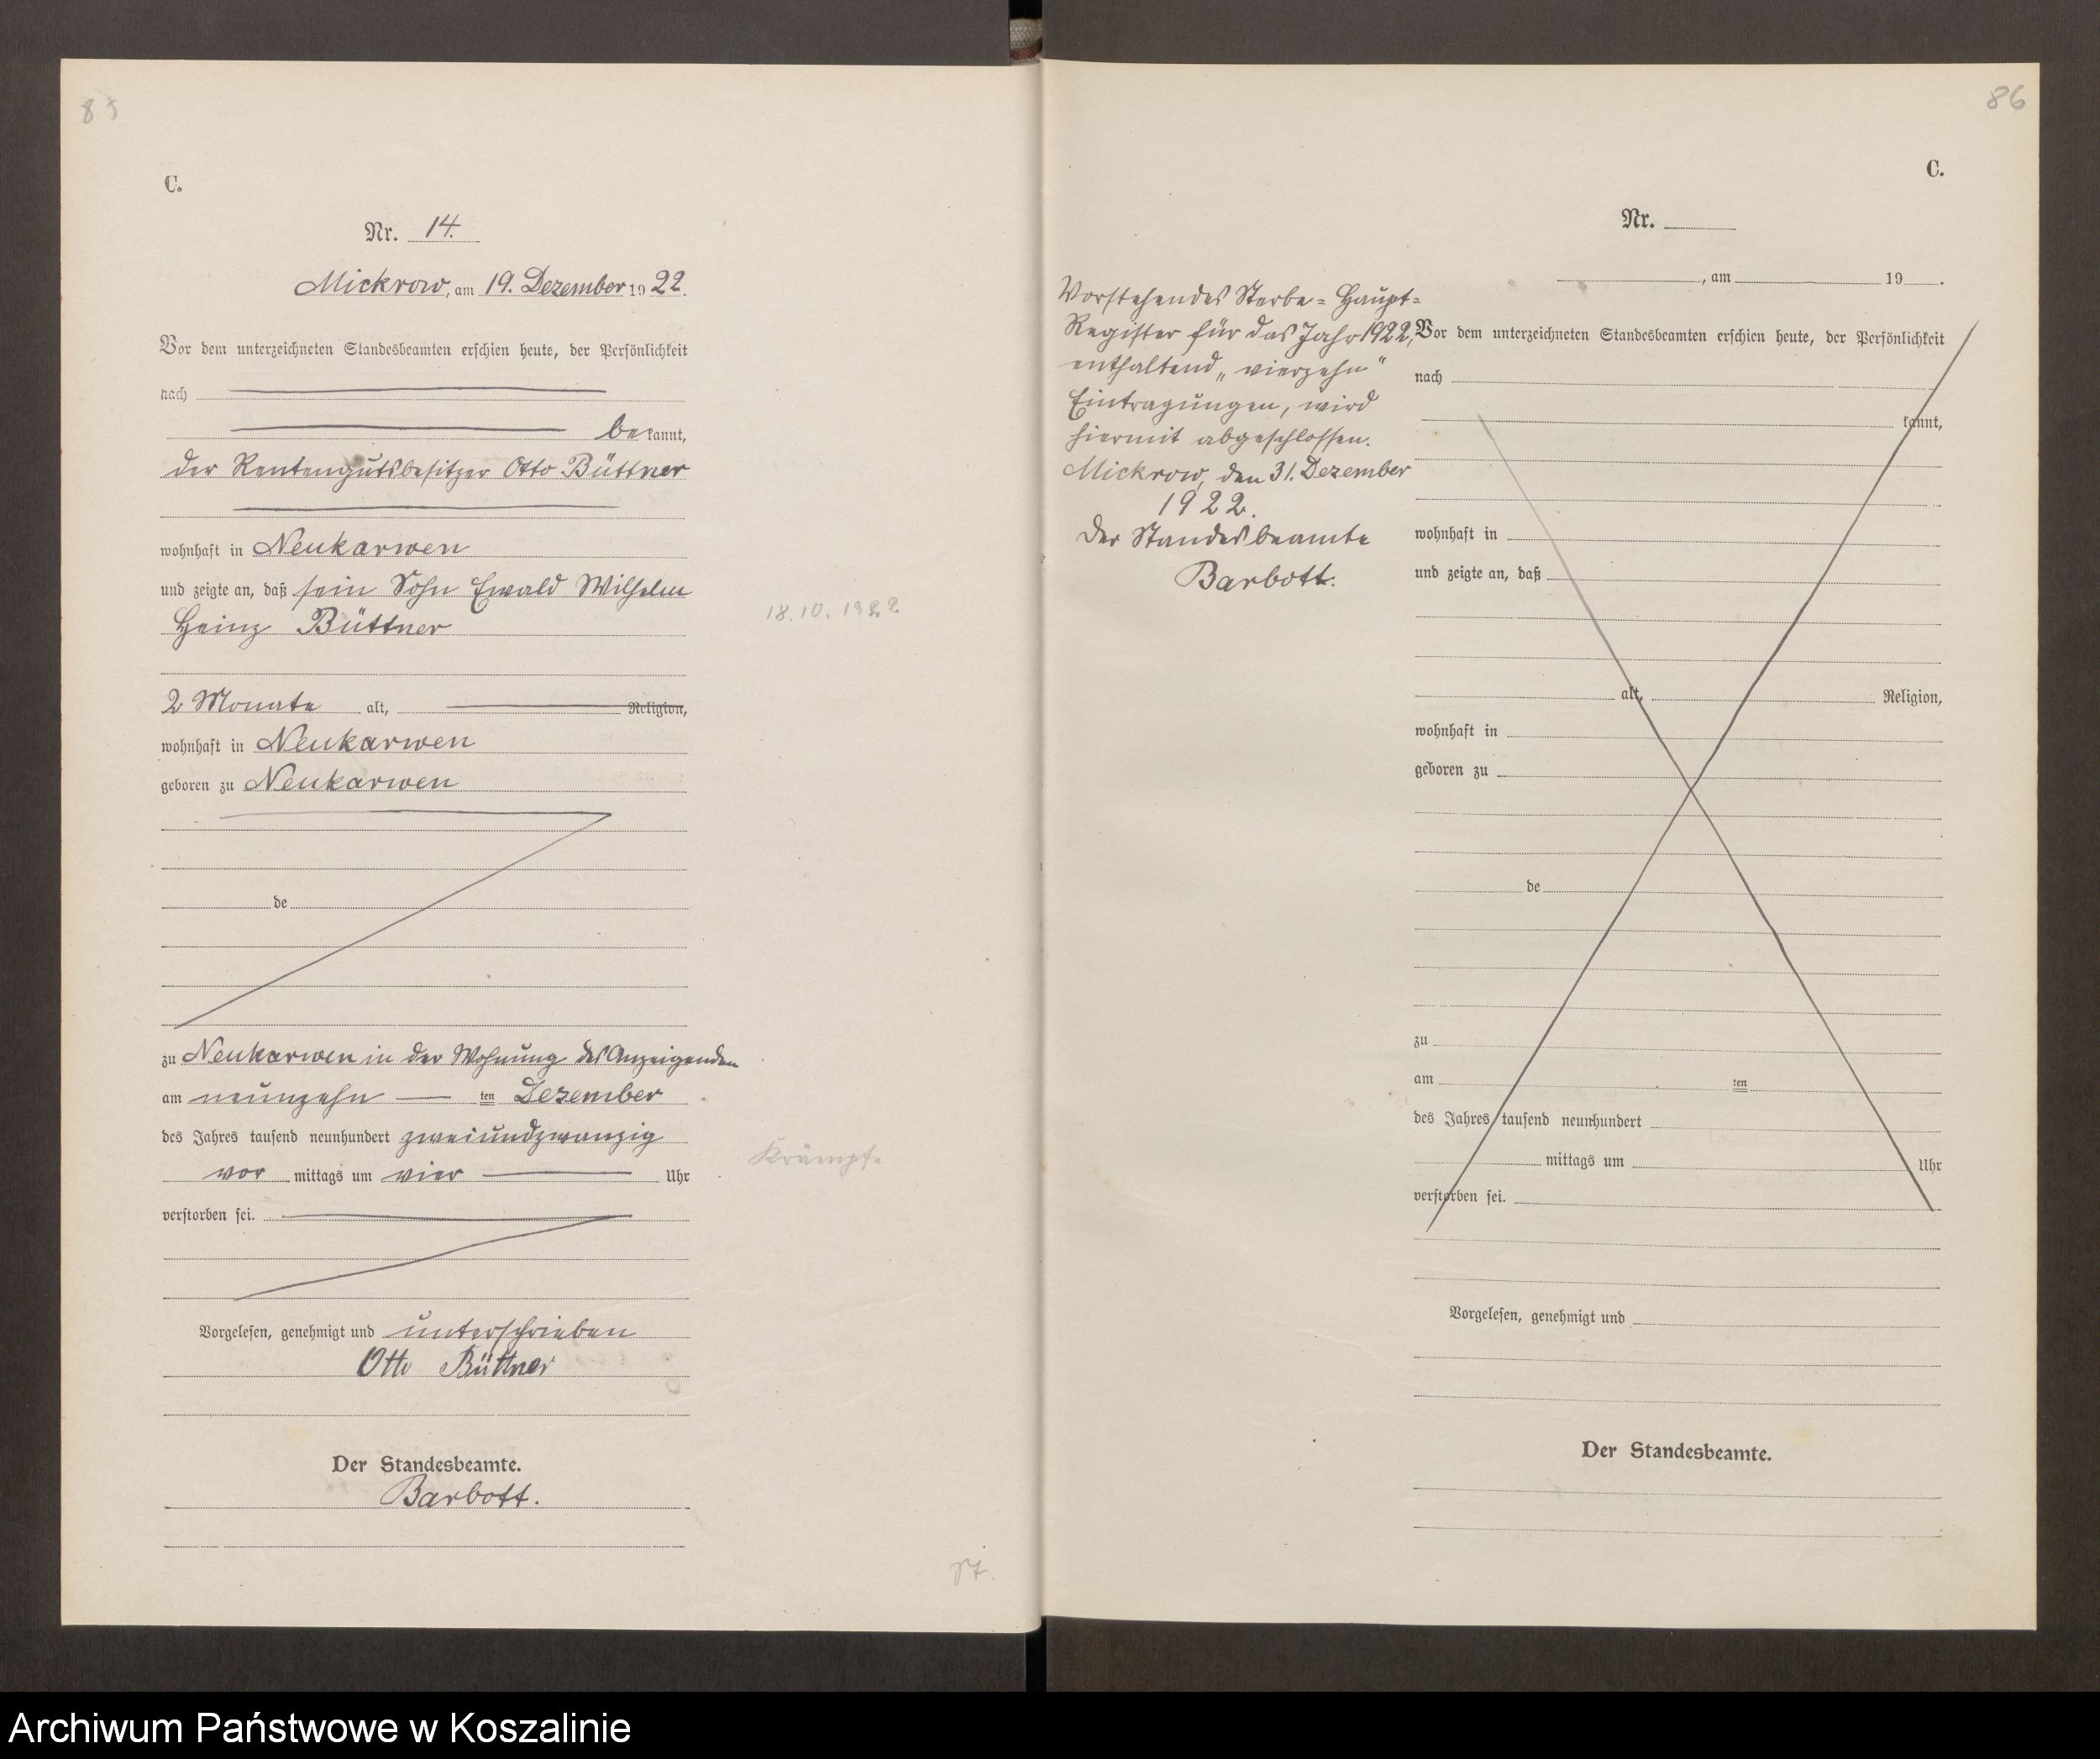 85
C.
Nr. 14.
Mickrow, am 19. Dezember 1922.
Vor dem unterzeichneten Standesbeamten erschien heute, der Persönlichkeit
nach
bekannt,
der Rentengutsbesitzer Otto Büttner
wohnhaft in Neukarwen
und zeigte an, daß sein Sohn Ewald Wilhelm
Heinz Büttner
18.10.1922
2 Monate alt, Religion,
wohnhaft in Neukarwen
geboren zu Neukarwen
de
zu Neukarwen in der Wohnung des Anzeigenden
am neunzehn ten Dezember
des Jahres tausend neunhundert zweiundzwanzig
Krämpfe
vor mittags um vier Uhr
verstorben sei.
Vorgelesen, genehmigt und unterschrieben
Otto Büttner
Der Standesbeamte.
Barbott.
86
C.
Vorstehendes Sterbe-Haupt-
Register für das Jahr 1922,
enthaltend „vierzehn"
Eintragungen, wird
hiermit abgeschlossen.
Mickrow, den 31. Dezember
1922.
Der Standesbeamte
Barbott.
Nr.
, am 19 .
Vor dem unterzeichneten Standesbeamten erschien heute, der Persönlichkeit
nach
kannt,
wohnhaft in
und zeigte an, daß
alt, Religion,
wohnhaft in
geboren zu
de
zu
am ten
des Jahres tausend neunhundert
mittags um Uhr
verstorben sei.
Vorgelesen, genehmigt und
Der Standesbeamte.
Archiwum Państwowe w Koszalinie